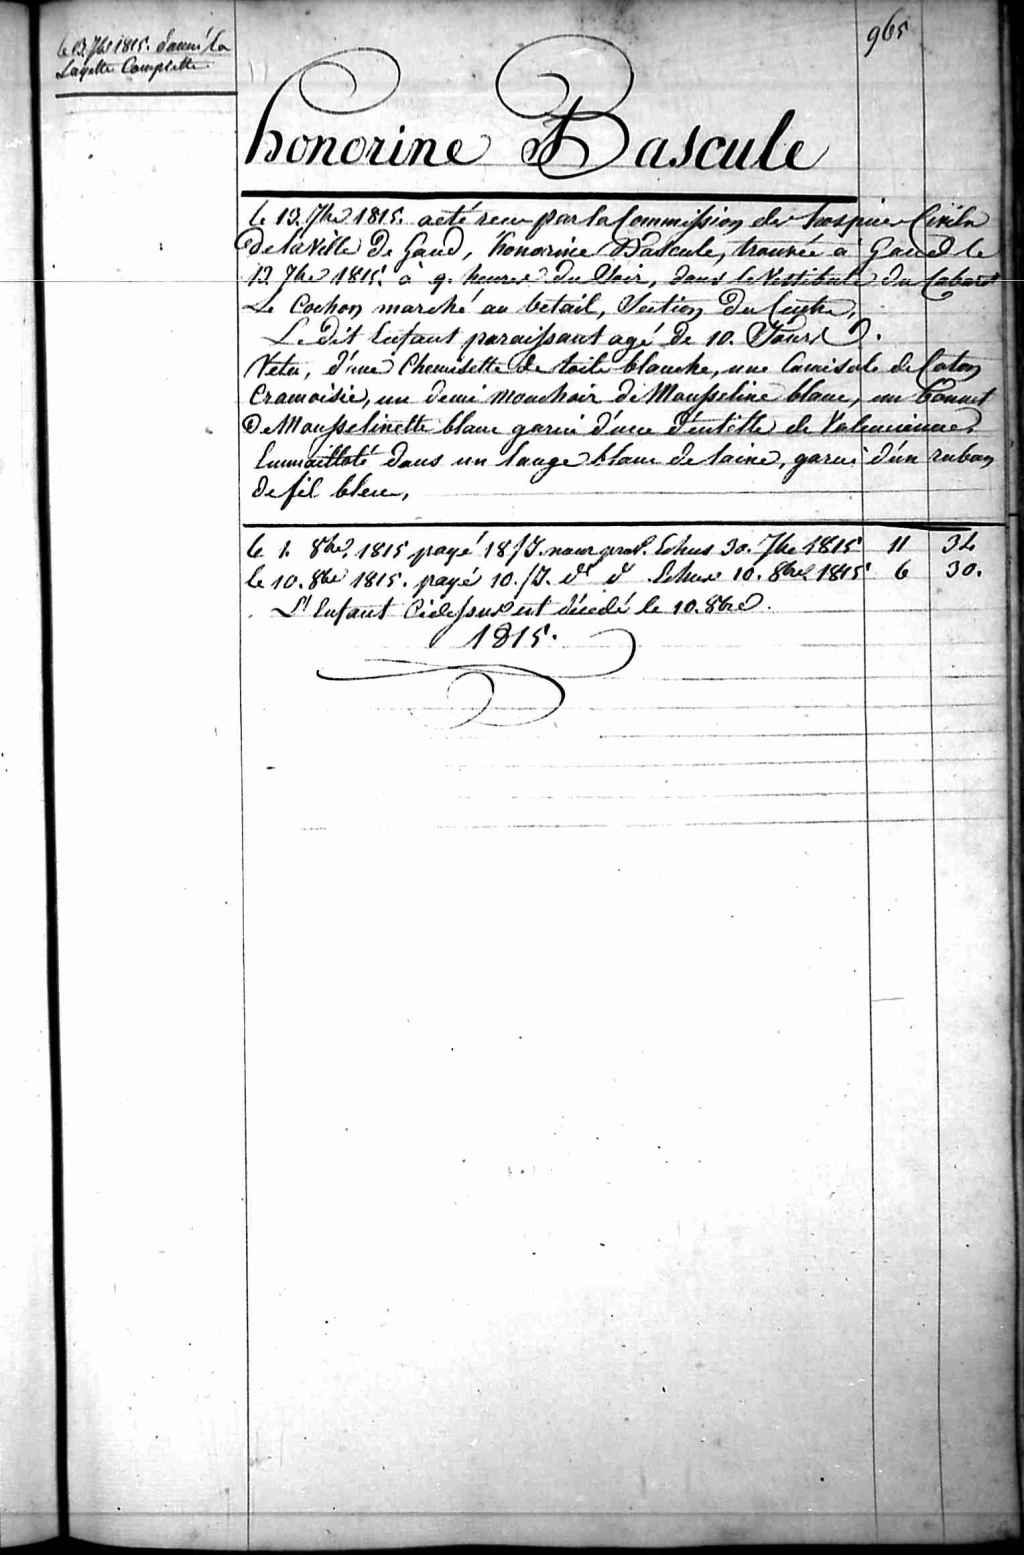 965
le 13. 7bre 1815. donné la
Layette Complette
honorine Bascule
le 13. 7bre 1815. a été recu par la Commission des hospices Civils
De la Ville De Gand, honorine Bascule, trouvée à Gand le
13. 7bre 1815. à 9. heures du Soir, dans le Vestibule du Cabaret
Le Cochon marché au betail, Section Du Centre,
Le Dit Enfant paraissant agé De 10. Jours.
Vetu, d'une Chemisette de toile blanche, une Camisole de Coton
Cramoisie, un demi mouchoir de Mousseline blanc, un bonnet
De Mousselinette blanc garni d'une dentelle de Valenciennes
Emmailloté dans un lange blanc de laine, garni d'un ruban
de fil bleu,
le 1. 8bre 1815 payé 18/J. nour Echus 30. 7bre 1815 11 34
le 10. 8bre 1815. payé 10./J. d° d° Echus 10. 8bre 1815 6 30.
L'Enfant Cidessus est décedé le 10. 8bre
1815.